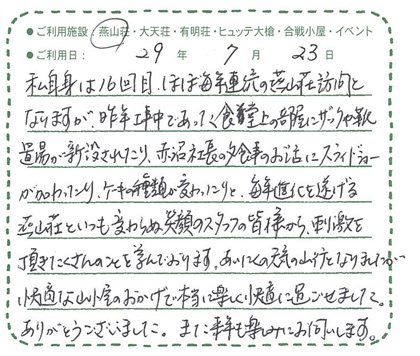 ●ご利用施設:燕山荘・大天荘・有明荘・ヒュッテ大槍・合戦小屋・イベント
●ご利用日: 29 年 7 月 23 日
私自身は16回目、ほぼ毎年連続の燕山荘訪問と
なりますが、昨年工事中であった食堂上の部屋にザックや靴
置場が新設されたり、赤沼社長の夕食事のお話にスライドショー
が加わったり、ケーキの種類が変わったりと、毎年進化を遂げる
燕山荘といつも変わらぬ笑顔のスタッフの皆様から、刺激を
頂きたくさんのことを学んでおります。あいにくの天気の山行となりましたが…
快適な山小屋のおかげで本当に楽しく快適に過ごせました。
ありがとうございました。また来年も楽しみにお伺いします。